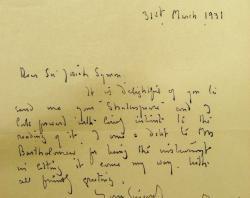 31st March 1931
Dear Sir Josiah Symon
It is delightful of you to
send me your Shakespeare and I
look forward with to the
reading of it. I owe a debt to Mrs
Bartholomew for being the instrument
in letting it come my way. With
all friendly greetings,